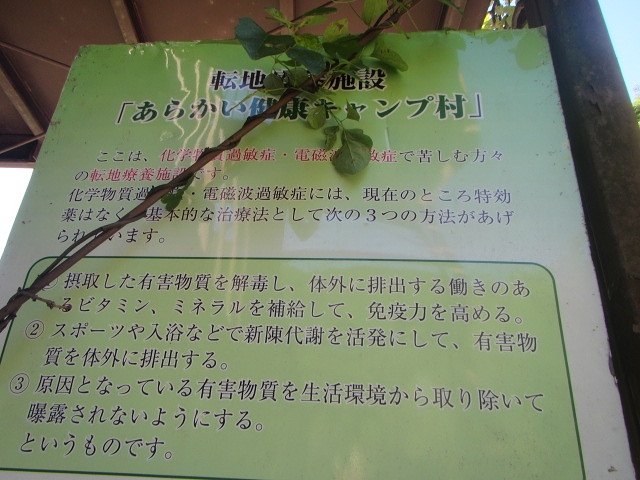 転地療養施設
「あらかい健康キャンプ村」
ここは、化学物質過敏症・電磁波過敏症で苦しむ方々
の転地療養施設です。
化学物質過敏症・電磁波過敏症には、現在のところ特効
薬はなく、基本的な治療法として次の3つの方法があげ
られています。
① 摂取した有害物質を解毒し、体外に排出する働きのあ
るビタミン、ミネラルを補給して、免疫力を高める。
② スポーツや入浴などで新陳代謝を活発にして、有害物
質を体外に排出する。
③ 原因となっている有害物質を生活環境から取り除いて
曝露されないようにする。
というものです。